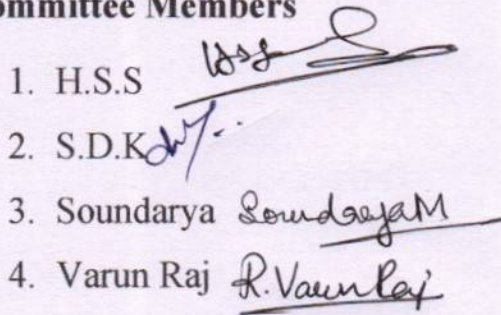 ommittee Members
1. H.S.S
2. S.D.K
3. Soundarya SoundaryaM
4. Varun Raj R.Varun Raj